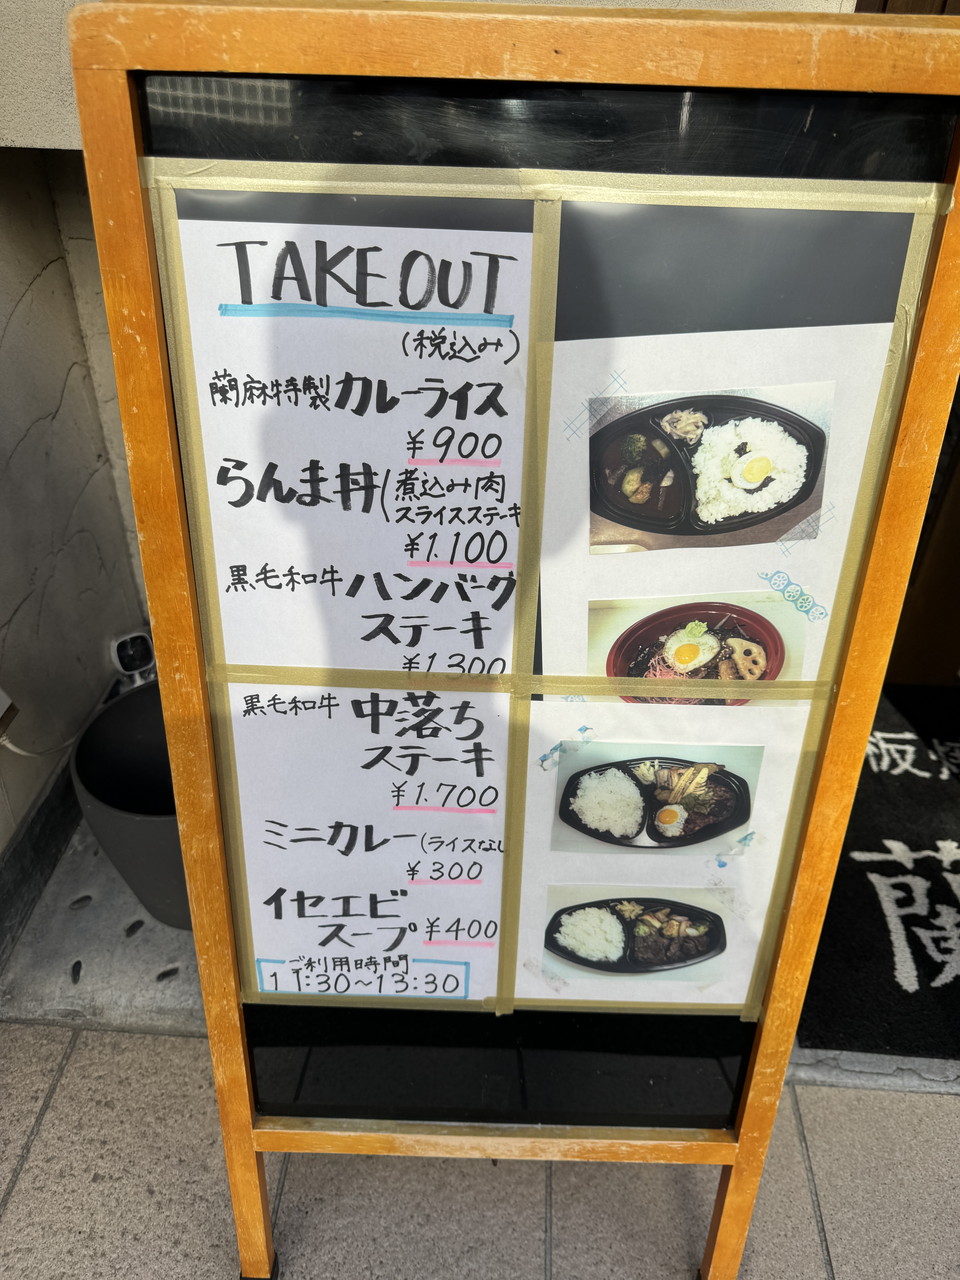 TAKE OUT
(税込み)
蘭麻特製 カレーライス
¥900
らんま丼(煮込み肉
スライスステーキ
¥1,100
黒毛和牛 ハンバーグ
ステーキ
¥1,300
黒毛和牛 中落ち
ステーキ
¥1,700
ミニカレー(ライスなし
¥300
イセエビ
スープ ¥400
ご利用時間
11:30~13:30
板
蘭